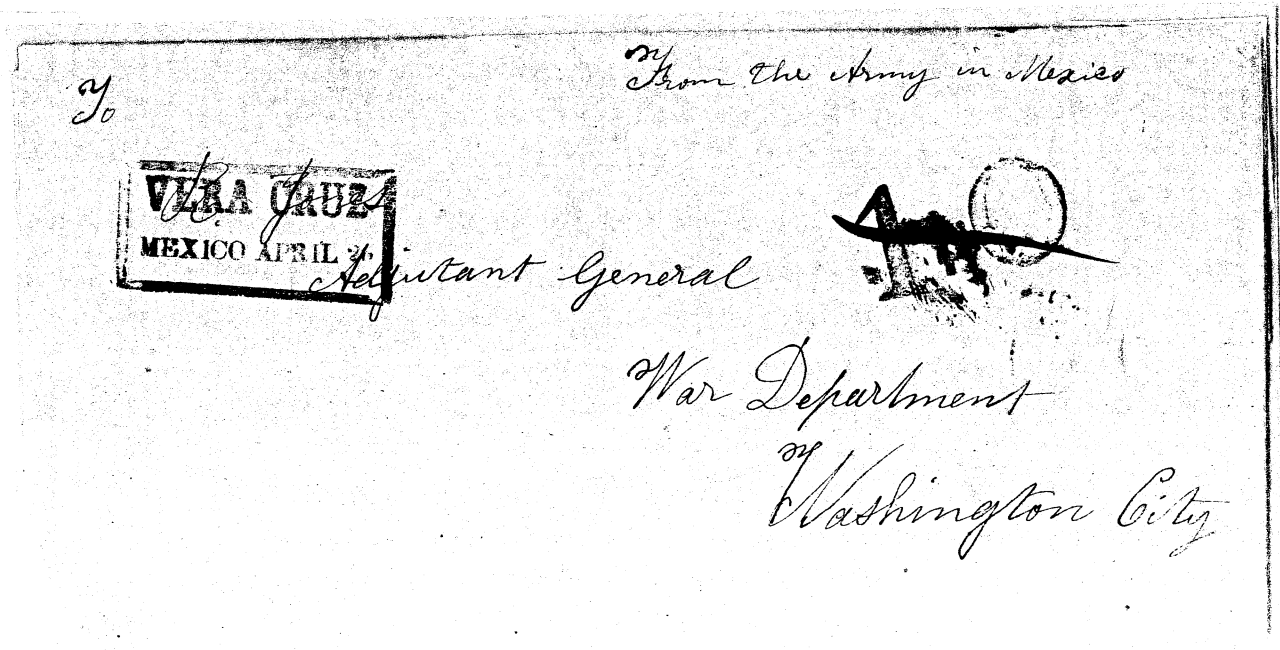 From the Army in Mexico
To
VERA CRUZ
R. Jones
MEXICO APRIL
Adjutant General
10
War Department
Washington City